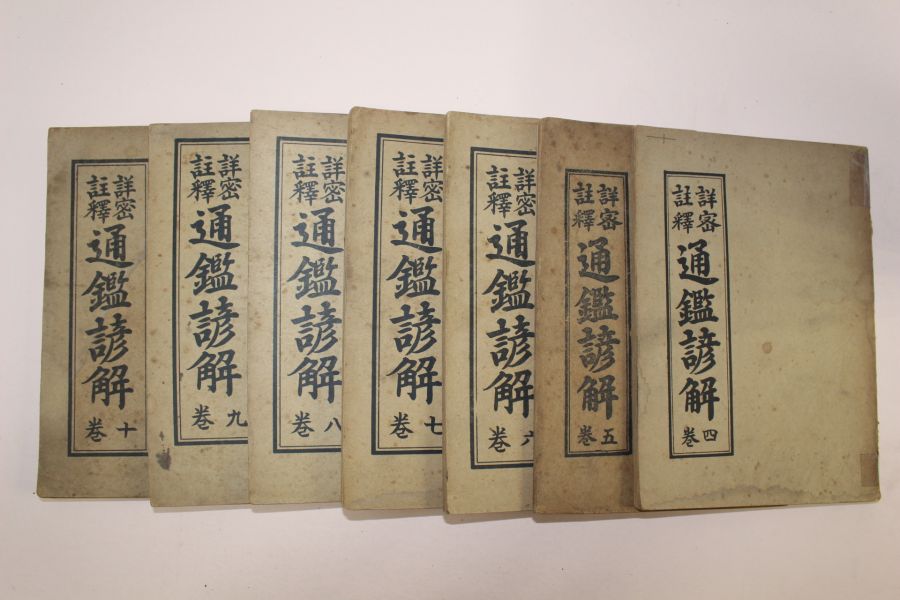 詳審
註釋
通鑑諺解
四卷
詳審
註釋
通鑑諺解
五卷
詳密
註釋
通鑑諺解
六卷
詳密
註釋
通鑑諺解
七卷
詳密
註釋
通鑑諺解
八卷
詳密
註釋
通鑑諺解
九卷
詳密
註釋
通鑑諺解
十卷